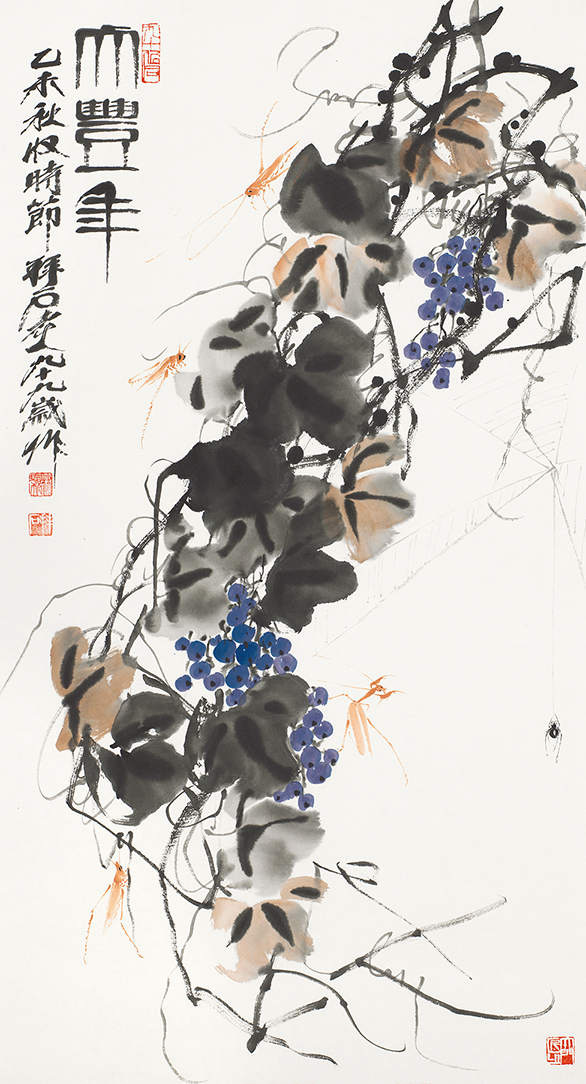 大豐年
乙未秋收時節拜石老人九十九歲作